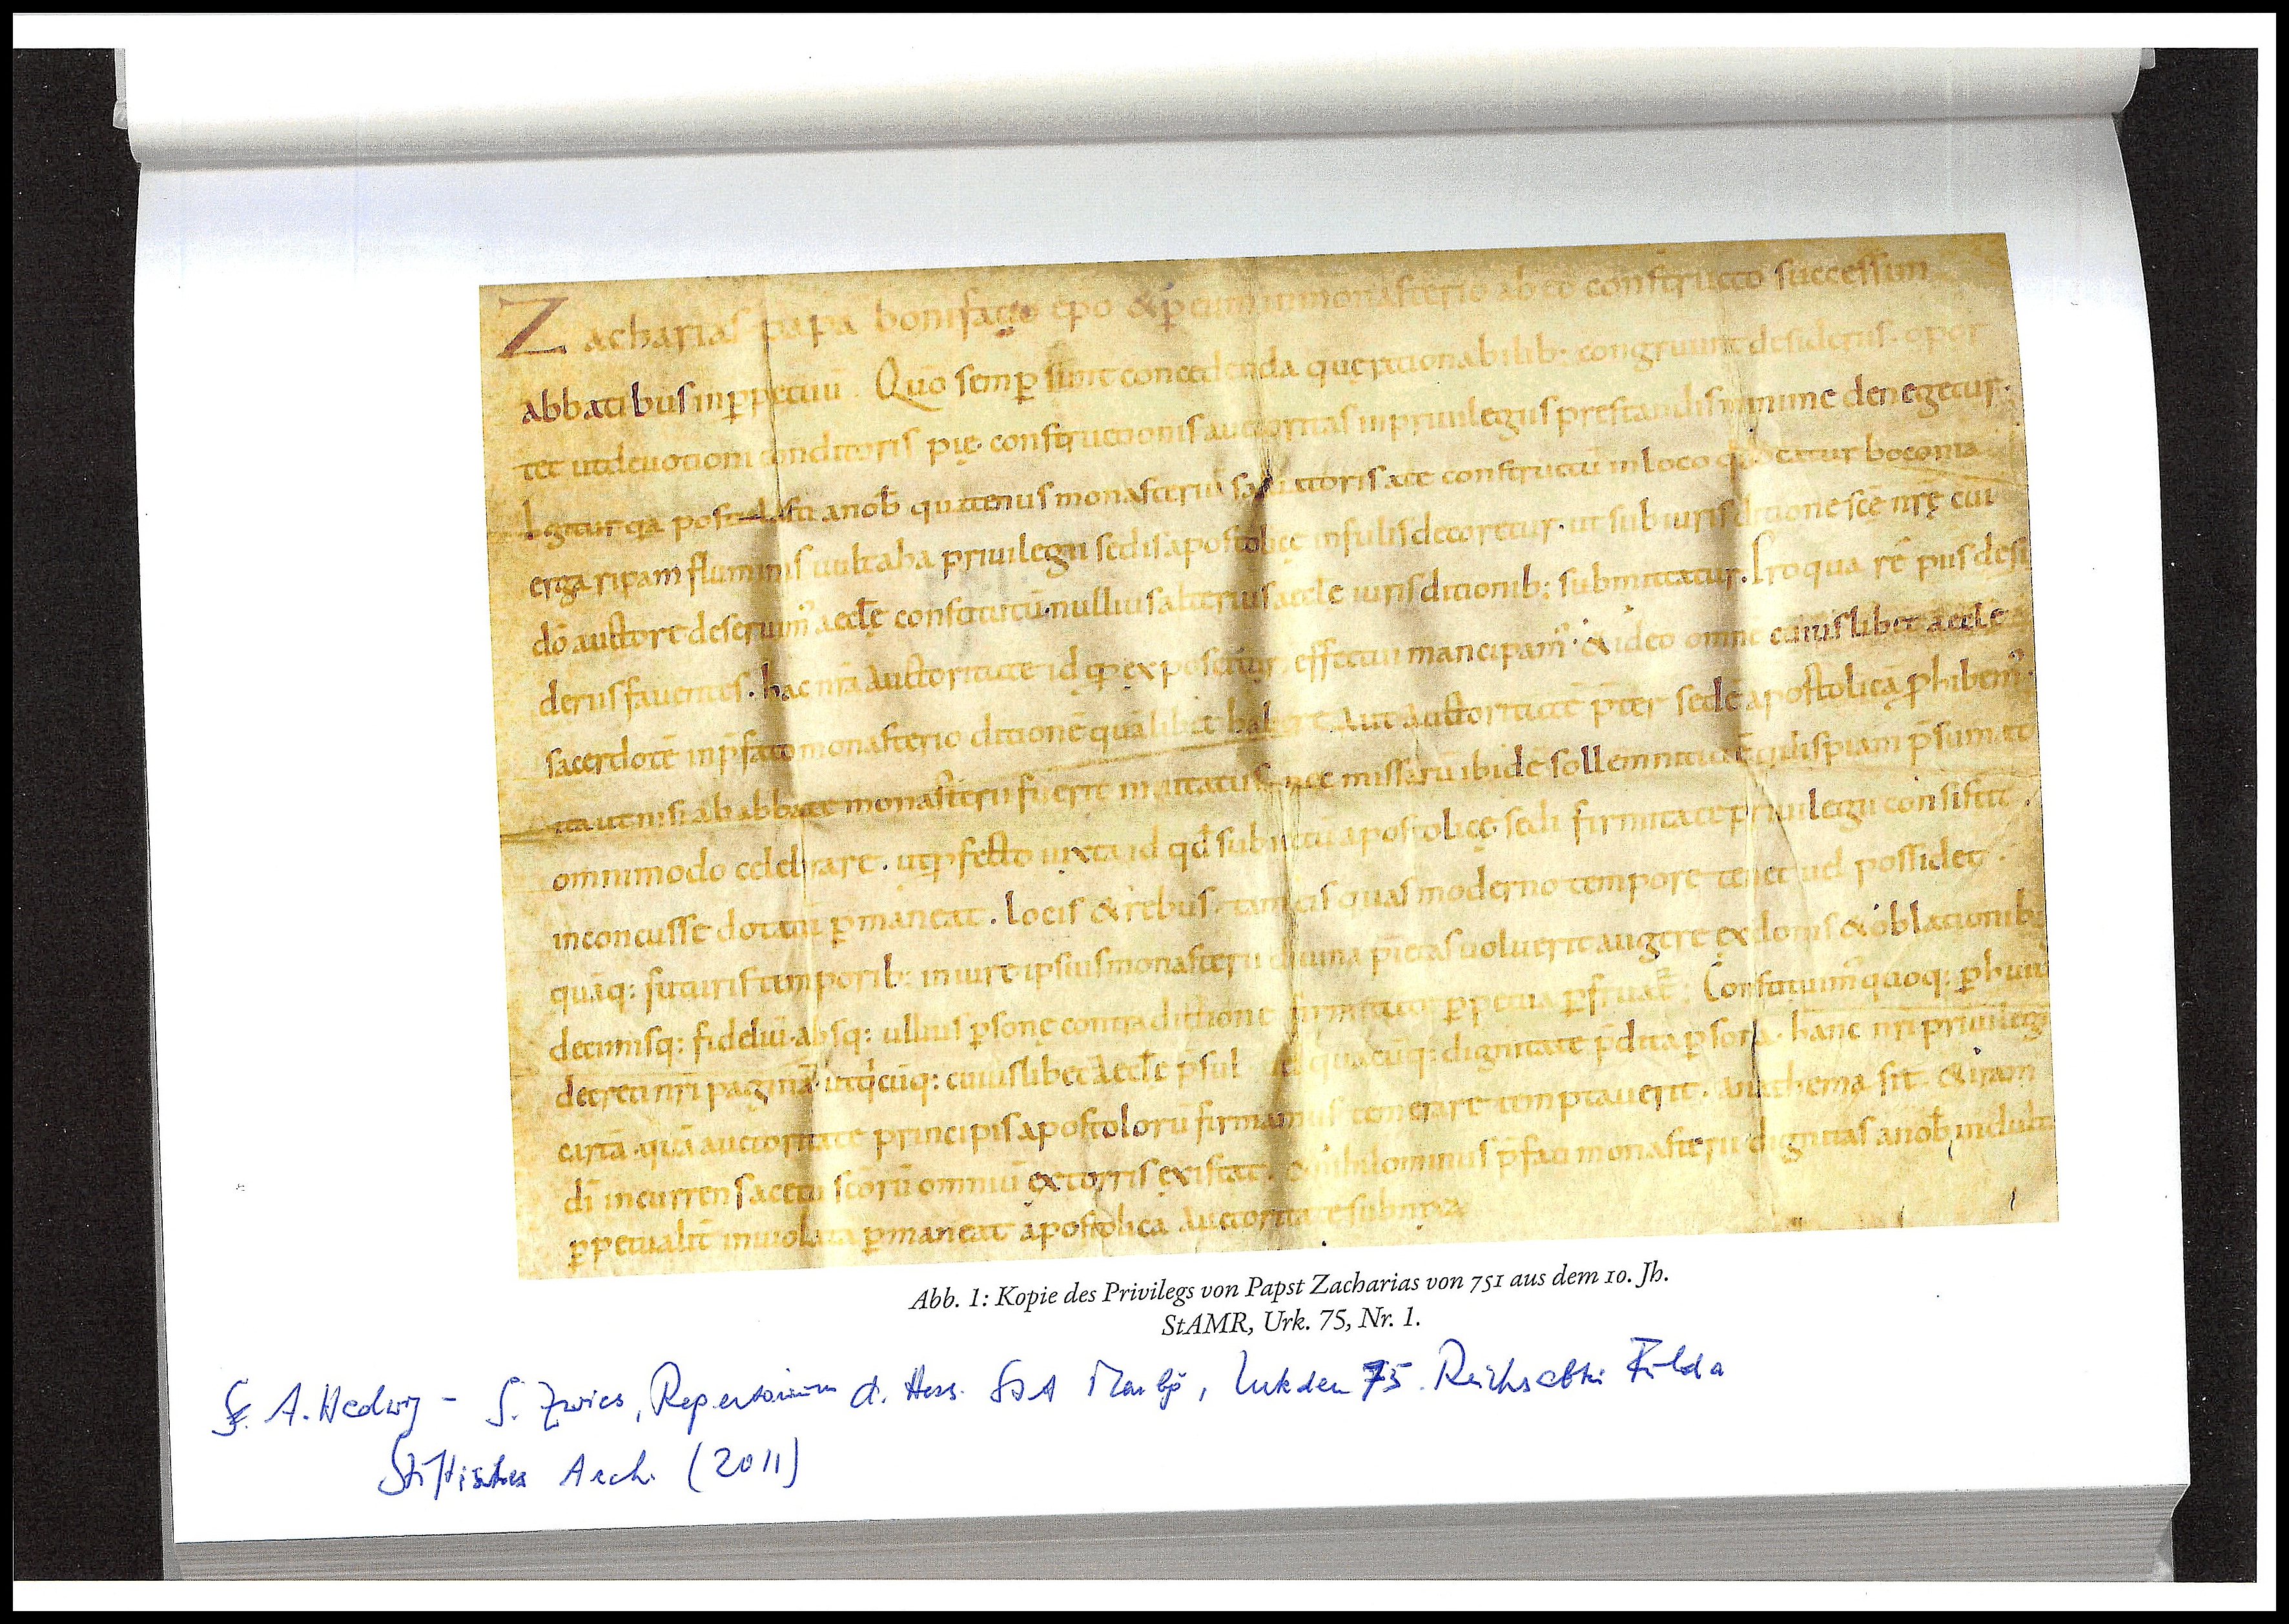 Zacharias papa bonifacio epō & p eum in monasterio ab eo constructo successim
abbatibus inp̄petuū. Quō semp̄ sunt concedenda quę rationabilib: congruunt desideriis. opor
tet ut deuotioni conditoris pię constructionis auctoritas in priuilegiis prestandis minime denegetur.
Igitur qa postulasti a nob̄ quatenus monasteriū saluatoris a te constructū in loco qui uocatur boconia
erga ripam fluminis uultaha priuilegii sedis apostolicę infulis decoretur. ut sub iurisditione scę nrę cui
dō auctore deseruim' aeclę constitutū. nullius alterius aeclę iurisditionib: submittatur. Pro qua rē piis desi
deriis fauentes. hac nr̄a auctoritate id qđ exposcitur effectui mancipam'. & ideo omnē cuiuslibet aeclę
sacerdotē in p̄fato monasterio ditionē quālibet habere aut auctoritatē p̄ter sedē apostolicā p̄hibem'.
ita ut nisi ab abbate monasterii fuerit inuitatus. nec missarū ibidē sollemnitatē quispiam p̄sumat
omnimodo celebrare. ut p̄fecto iuxta id qđ subiectū apostolicę sedi firmitate priuilegii consistit.
inconcusse dotatū p̄maneat. locis & rebus. tam eis quas moderno tempore tenet uel possidet.
quāq: futuris temporib: in iure ipsius monasterii diuina pietas uoluerit augere ex donis & oblationib:
decimisq: fideliū. absq: ullius p̄sonę contradictione firmitate p̄petua p̄fruat̄. Constituim' quoq: p̄ huiᷤ
decreti nr̄i paginā. ut qicūq: cuiuslibet aeclę p̄sul uel quacūq: dignitate p̄dita p̄sona. hanc nr̄i priuilegii
cartā. quā auctoritate principis apostolorū firmamus temerare temptauerit. anathema sit & iram
dī incurrens a cetu scōrū omniū extorris existat. & nihilominus p̄fati monasterii dignitas a nob̄ indulta
p̄petualit̄ inuiolata p̄maneat apostolica auctoritate subnixa
Abb. 1: Kopie des Privilegs von Papst Zacharias von 751 aus dem 10. Jh.
StAMR, Urk. 75, Nr. 1.
A. Hedwig - S. Zwies, Repertorium d. Hess. StA Marbg, Urkden 75. Reichsabtei Fulda
Stiftisches Arch. (2011)